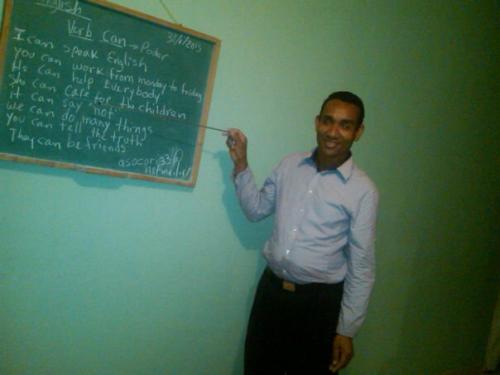 English
Verb Can → Poder 31/6/2015
I can speak English
you can work from monday to friday
He can help Everybody
She can care for the children
it can say "not"
we can do many things
you can tell the truth
They can be friends